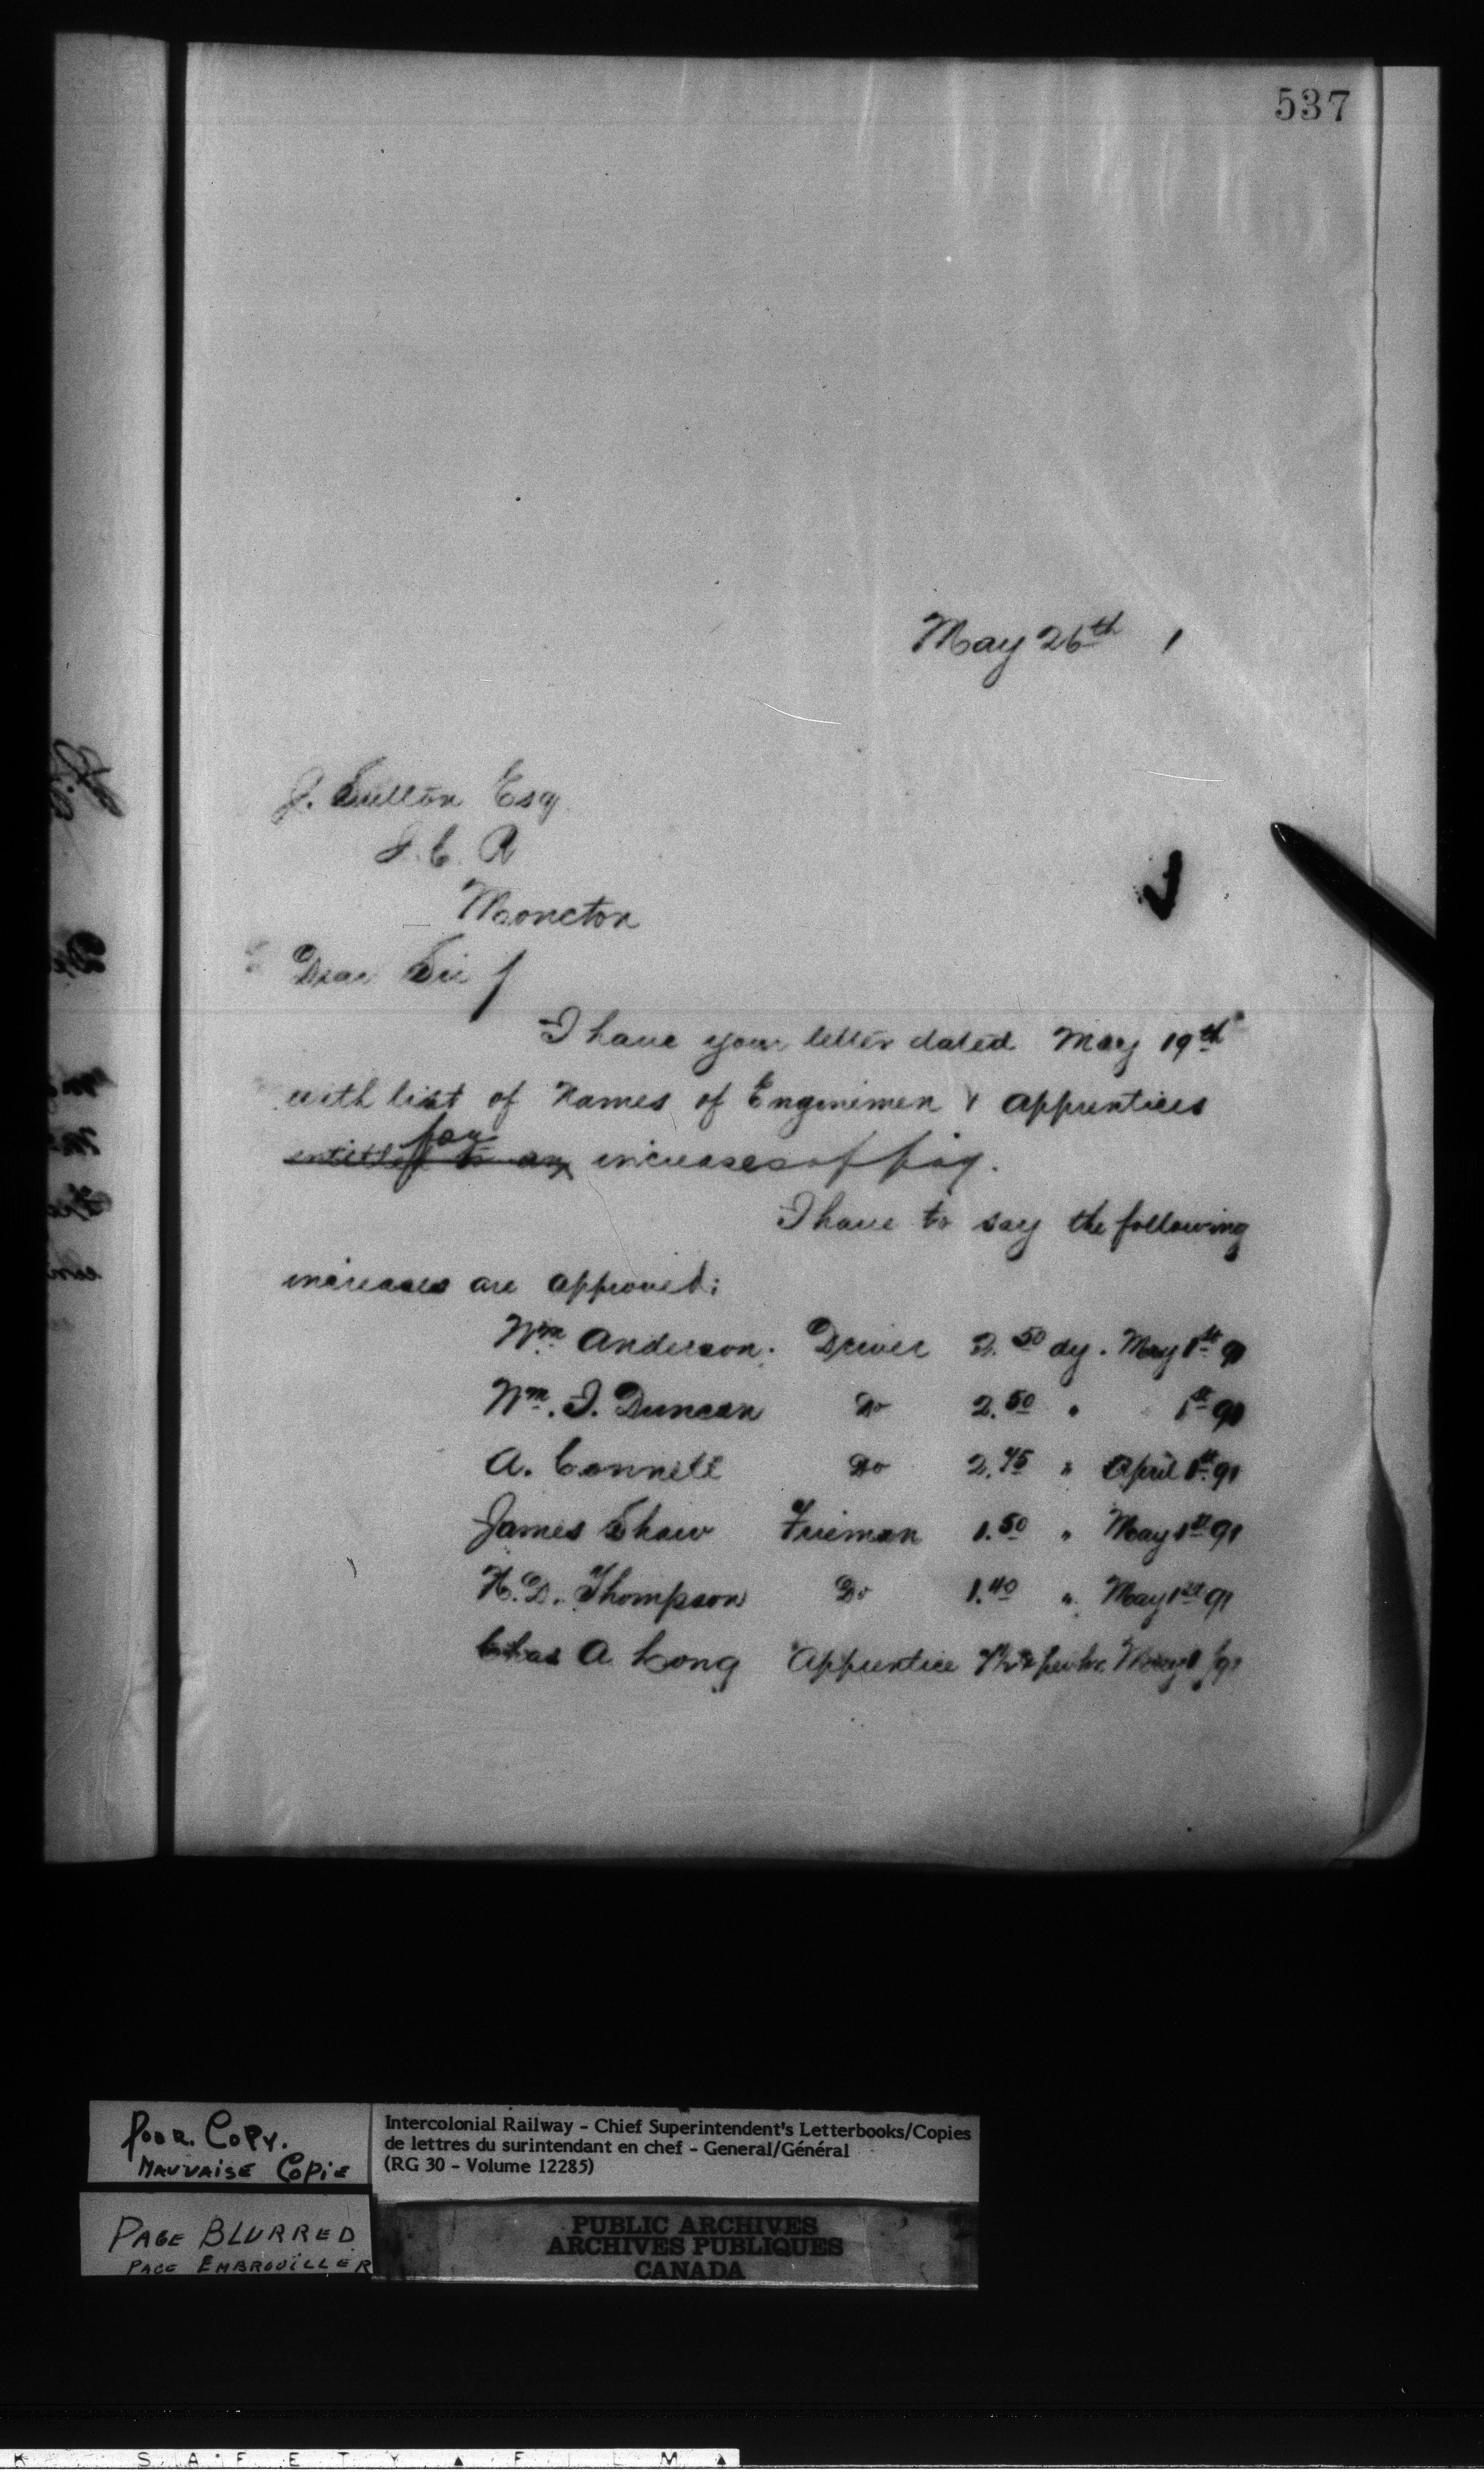 537
May 26th 1
J. Sutton Esq
I. C. R
Moncton
Dear Sir
I have your letter dated May 19th
with list of Names of Enginemen & Apprentices
for
entitled to an increases of pay.
I have to say the following
increases are approved:
Wm Anderson. Driver 2.50 dy. May 1st 91
Wm. I. Duncan Do 2.50 " 1st 91
A. Connell Do 2.45 " April 1st 91
James Shaw Fireman 1.50 " May 1st 91
H. D. Thompson Do 1.40 " May 1st 91
Chas A Long Apprentice per hr. May 1/91
Poor. Copy.
Mauvaise Copie
Intercolonial Railway - Chief Superintendent's Letterbooks/Copies
de lettres du surintendant en chef - General/Général
(RG 30 - Volume 12285)
PAGE BLURRED
PAGE EMBROUILLER
PUBLIC ARCHIVES
ARCHIVES PUBLIQUES
CANADA
K SAFETY ▲ FILM ▲